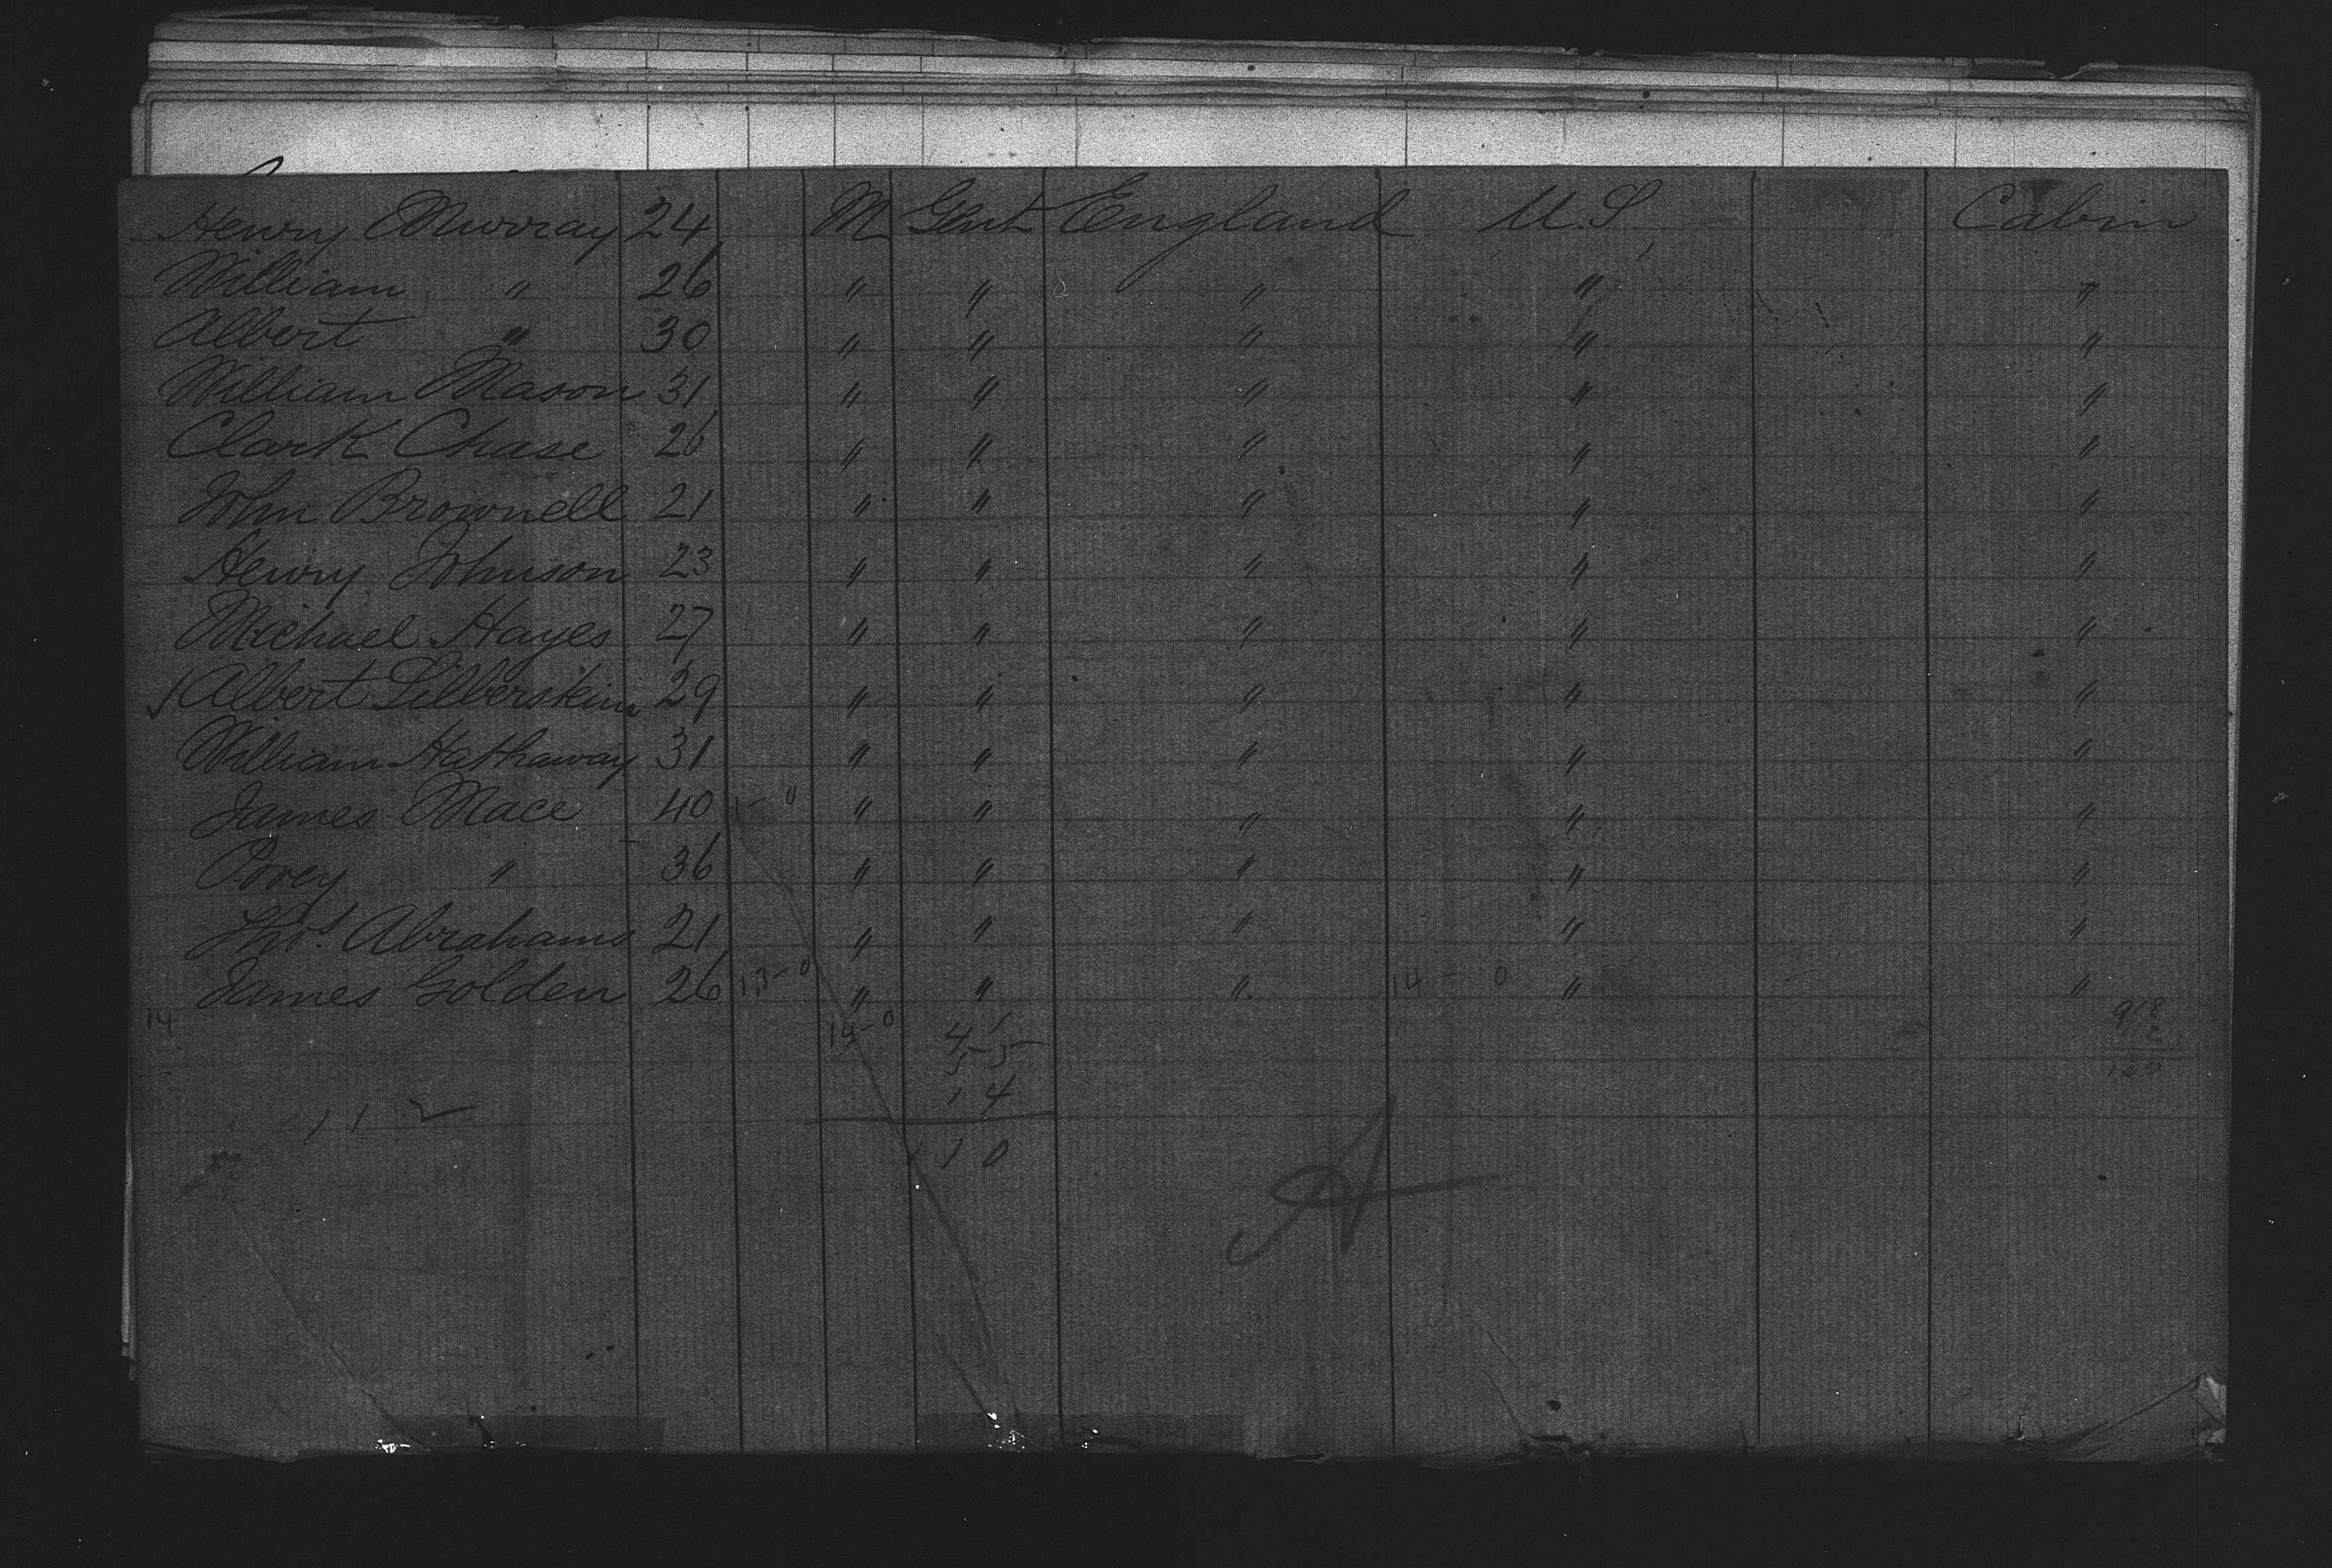 Henry Murray 24 M Gent England U.S. Cabin
William " 26 " " " " "
Albert " 30 " " " " "
William Mason 31 " " " " "
Clark Chase 26 " " " " "
John Brownell 21 " " " " "
Henry Johnson 23 " " " " "
Michael Hayes 27 " " " " "
✓ Albert Lilberskin 29 " " " " "
William Hathaway 31 " " " " "
James Mace 40 1 - " " " " " "
Covey " 36 " " " " "
Thos. Abrahams 21 " " " " "
James Golden 26 13-0 " " " 14 - 0 " "
14 14-0 41 98
55 2
14 100
11 ✓
110
A